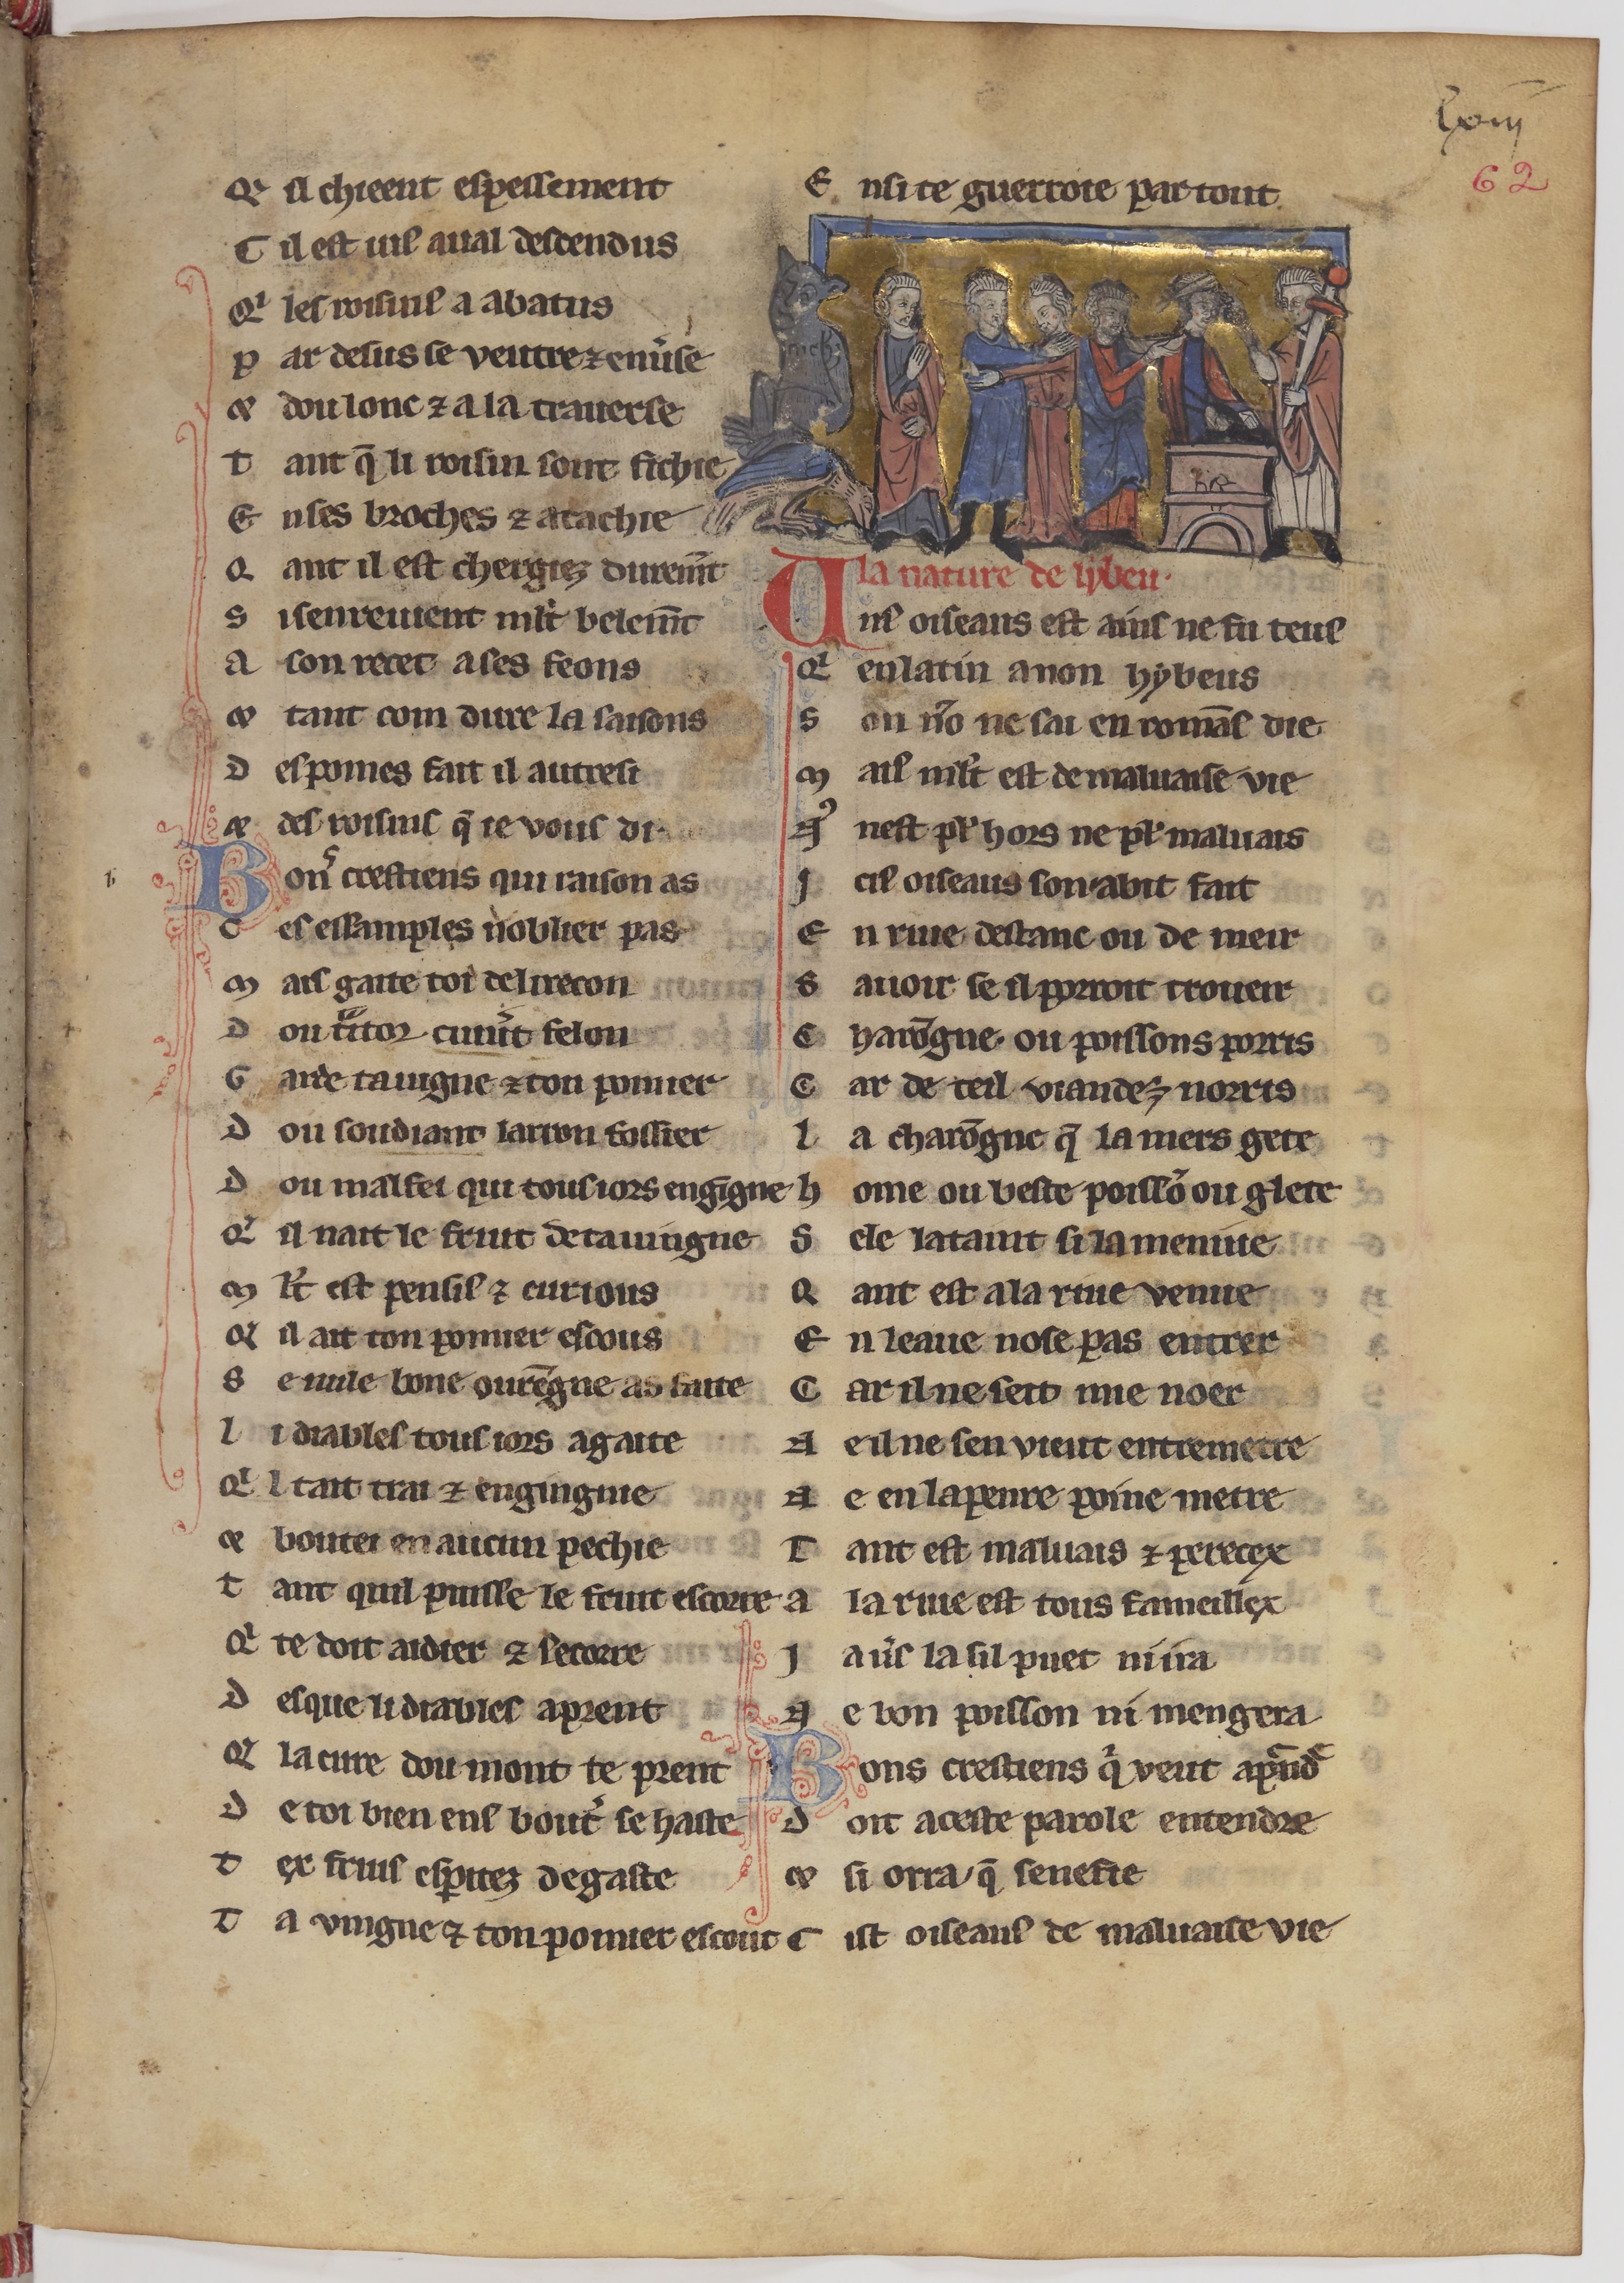 lxiiij
62
Qͥ il chieent espessement
C il est uis aual descendus
Qͥ les roisins a abatus
P ar desus se ventre ⁊ enuͥse
⁊ dou lonc ⁊ a la trauerse
T ant q̄ li roisin sont fichie
E n ses broches ⁊ atachie
Q ant il est chergiez durem̄t
S i senreuient ml̄t belem̄t
A son recet a ses feons
⁊ tant com dure la saisons
D es pomes fait il autresi
⁊ des roisins q̄ ie vous di
B onˢ crestiens qui raison as
C es essamples n oblier pas
M ais gaite toi del irecon
D ou felon
G arde ta uigne ⁊ ton pomier
D ou soudiant larron fossier
D ou malfei qui tous iors engigne
Qͥ il nait le fruit de ta uingne
M l̄t est pensis ⁊ curious
Qͥ il ait ton pomier escous
S e nule bone ourēgne as faite
L i diables tous iors agaite
Qͥ l tait trai ⁊ engingnie
⁊ boutei en aucun pechie
T ant quil puisse le fruit escorre
Qͥ te doit aidier ⁊ secorre
D esque li diables aprent
Qͥ la cure dou mont te prent
D e toi bien ens bout̾ se haste
T ex fruis espitez degaste
T a vingne ⁊ ton pomier escout
E nsi te guerroie par tout
la nature de lybeu.
U ns oiseaus est ains ne fu teus
Qͥ en latin a non hybeus
S on nō ne sai en romās die
M ais ml̄t est de maluaise vie
nest pl̾ hors ne pl̾ maluais
J cis oiseaus son abit fait
E n riue destanc ou de meir
S auoir se il porroit troueir
C harōgne ou poissons porris
C ar de teil viandez norris
L a charōgne q̄ la mers gete
H ome ou beste poissō ou glete
S ele lataint si la meniue
Q ant est a la riue venue
E n leaue nose pas entrer
C ar il ne seit mie noer
N e il ne sen vieut entremetre
N e en lapenre poine metre
T ant est maluais ⁊ perecex
A la riue est tous fameillex
J a uͥs la sil puet ni ira
N e bon poisson ni mengera
B ons crestiens qͥ veut apͣndͤ
D oit a ceste parole entendre
⁊ si orra q̄ senefie
C ist oiseaus de maluaise vie